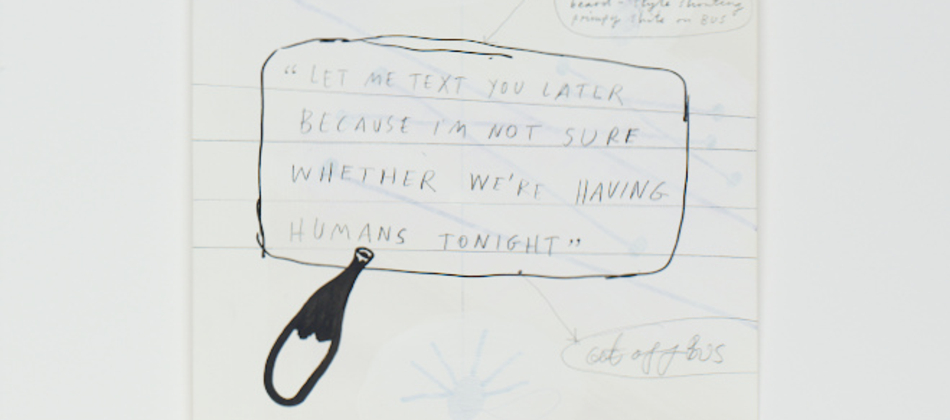 beard - style shouting
primpy shite on BUS
"LET ME TEXT YOU LATER
BECAUSE I'M NOT SURE
WHETHER WE'RE HAVING
HUMANS TONIGHT"
get off BUS